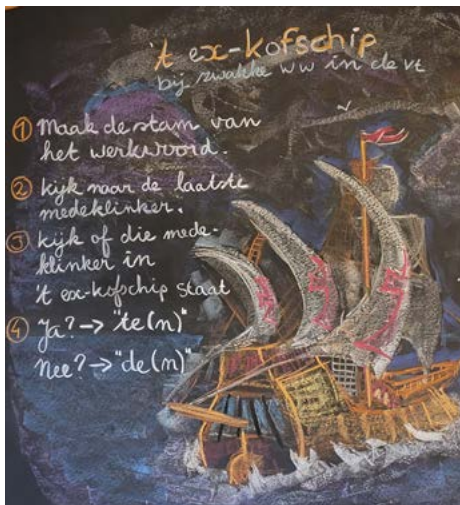 't ex-kofschip
bij zwakke ww in de vt
① Maak de stam van
het werkwoord.
② kijk naar de laatste
medeklinker.
③ kijk of die mede-
klinker in
't ex-kofschip staat
④ Ja? → "te(n)"
Nee? → "de(n)"